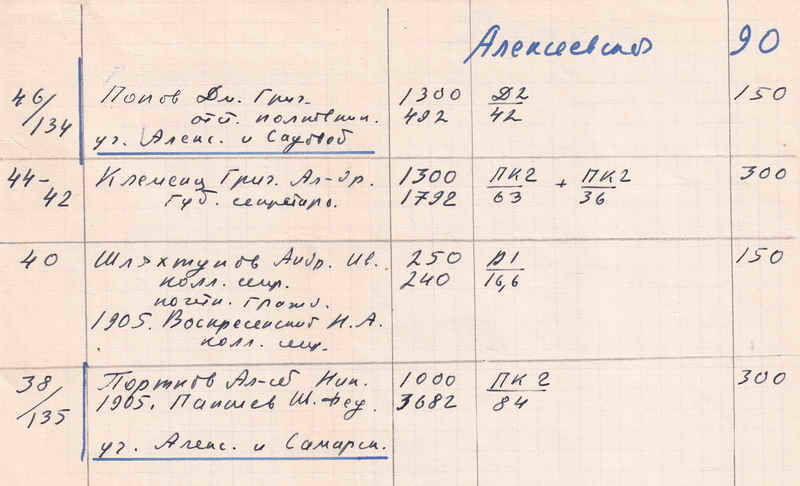 Алексеевская 90
46/134 Попов Дм. Григ. 1300 Д2 150
отст. полковник. 492 42
уг. Алекс. и Садовой
44- Клеменц Григ. Ал-др. 1300 ПК2 + ПК2 300
42 губ. секретарь. 1792 63 36
40 Шляхтунов Андр. Ив. 250 Д1 150
колл. 240 16,6
почетн. гражд.
1905. Воскресенский Н.А.
колл.
38/135 Портнов Ал-ей Ник. 1000 ПК2 300
1905. Паншев Фед. 3682 84
уг. Алекс. и Самарск.